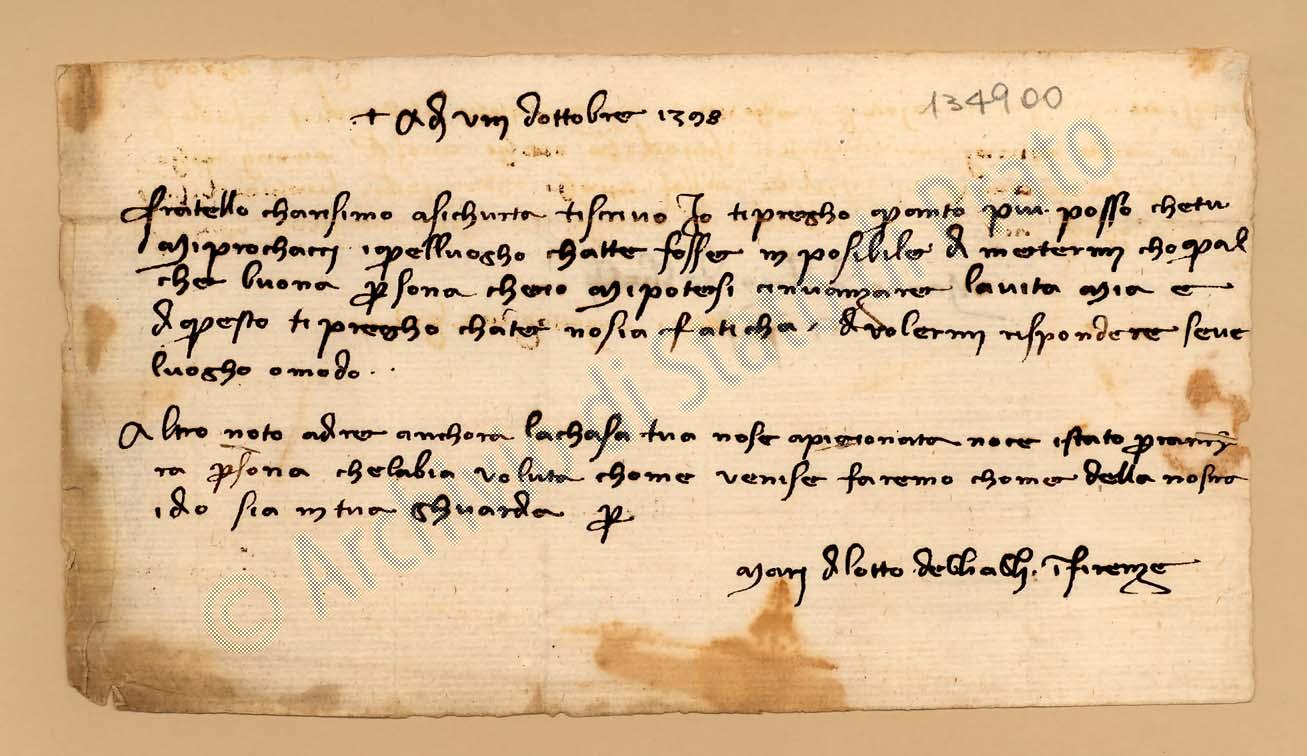 134900
+ Adì VIII d'ottobre 1398
fratello charisimo a sichurta ti scrivo Io ti pregho quanto più posso che tu
mi prochacci i quelluogho chatte fosse in posibile di metermi cho qual
che buona persona che io mi potessi avanzare la vita mia e
di questo ti pregho cha te no sia faticha di volermi rispondere se ve
luogho o modo
Altro noto a dire anchora la chasa tua nose apigionata noce istato
persona che labia voluta chome venise faremo chome della nostra
idio sia in tua ghuardia per
Nari di lotto degli agli in firenze
© Archivio di Stato di Prato